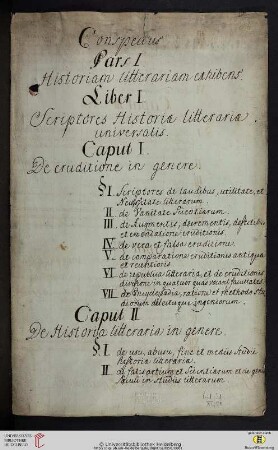 Conspectus
Pars I.
Historiam litterariam exhibens.
Liber I.
Scriptores Historiæ litterariæ
universalis.
Caput I.
De eruditione in genere.
§. I. Scriptores de laudibus, utilitate, et
Necessitate litterarum.
II. de Vanitate Scientiarum.
III. de Augmentis, decrementis, defectibus
et emendatione eruditionis.
IV. de vera et falsa eruditione.
V. de comparatione eruditionis antiquæ
et recentioris.
VI. de republica litteraria, et de eruditionis
divisione in quatuor quas vocant facultates.
VII. de Encyclopædia, ratione et methodo
delectuque ingeniorum.
Caput II.
De Historia litteraria in genere
§. I. de usu, abusu, fine et mediis studii
historiæ litterariæ.
II. de
et Scientiarum
in studiis litterarum.
UNIVERSITÄTS-
BIBLIOTHEK
HEIDELBERG
© Universitätsbibliothek Heidelberg